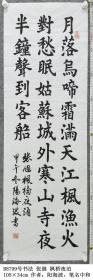 月落烏啼霜滿天江楓漁火
對愁眠姑蘇城外寒山寺夜
半鐘聲到客船
張繼楓橋夜泊
甲午年陽海波書
B8799号书法 张继 枫桥夜泊
108×34cm 作者：阳海波，笔名中和